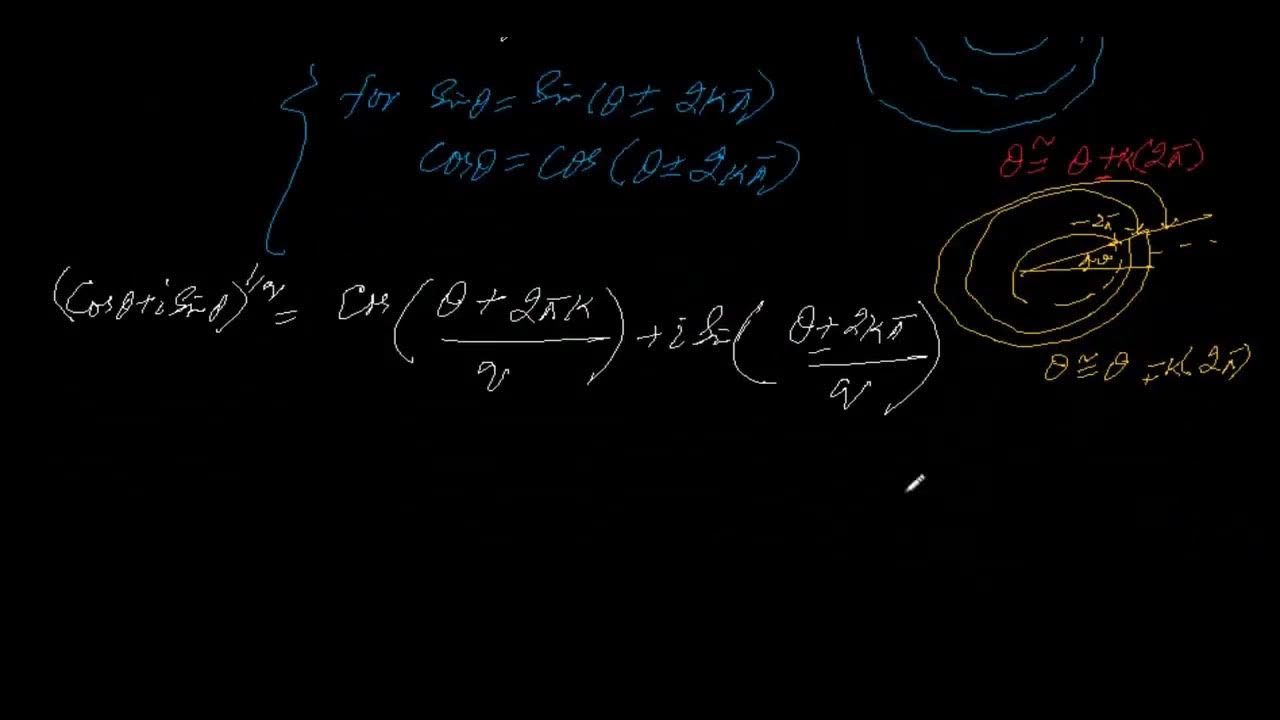 for sinθ = sin(θ ± 2kπ)
cosθ = cos(θ ± 2kπ)
θ ≅ θ + k(2π)
-2π
(cosθ + i sinθ)^1/q = cos((θ + 2πk)/q) + i sin((θ + 2kπ)/q)
θ ≅ θ - k(2π)